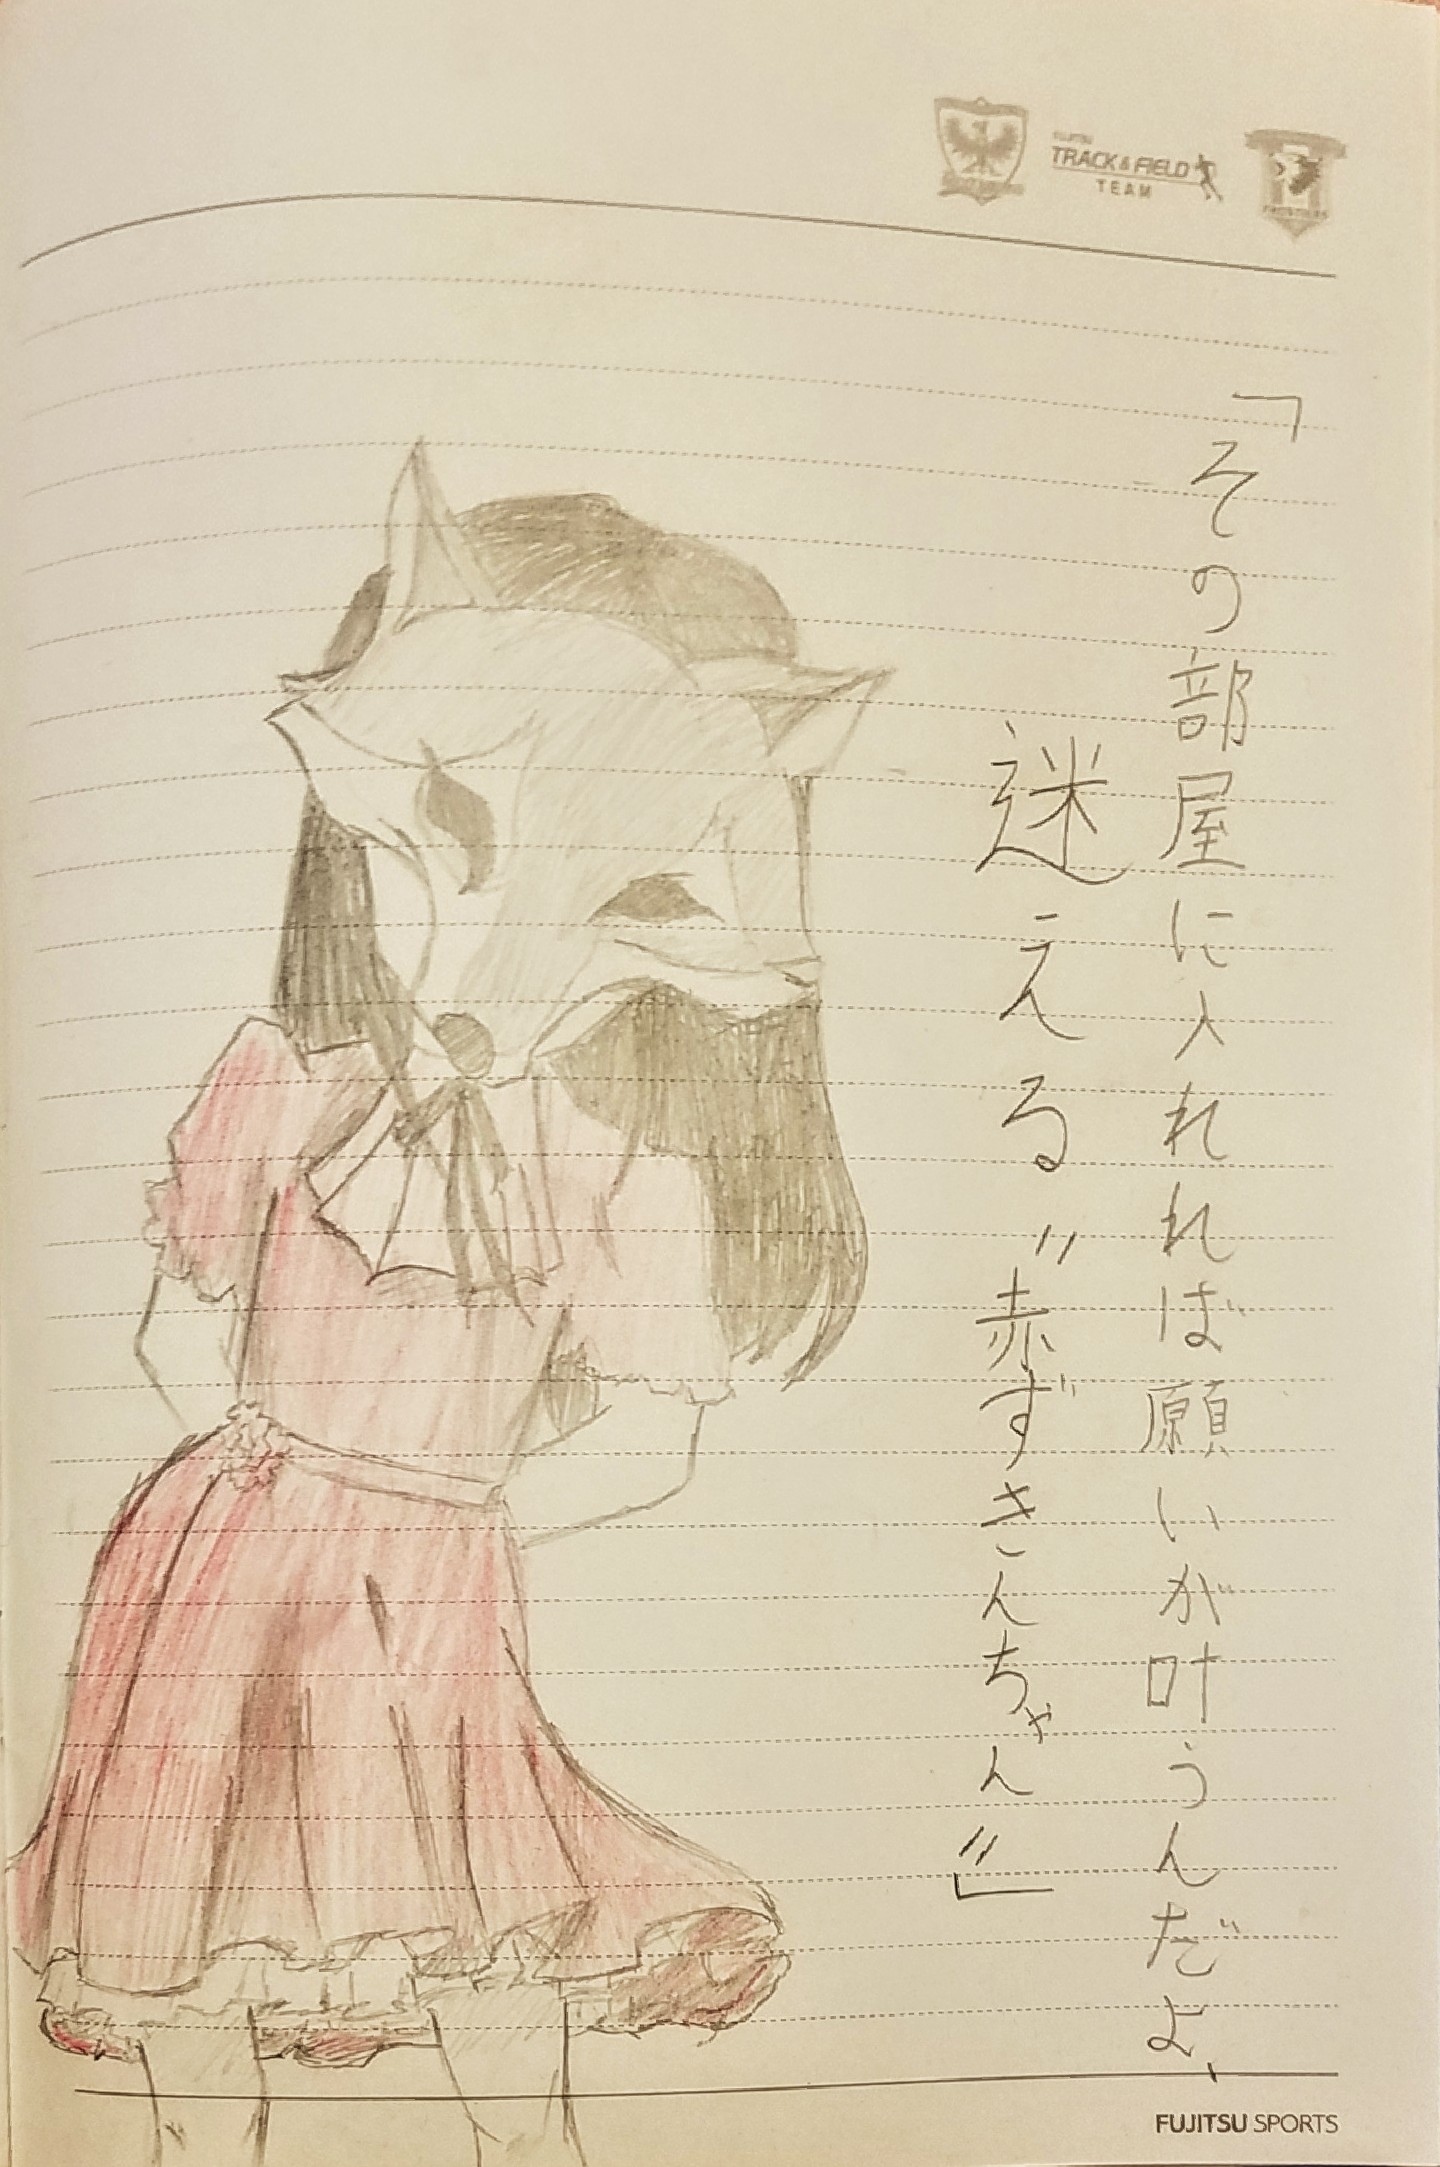 FUJITSU
TRACK & FIELD
TEAM
FRONTIERS
「その部屋に入れれば願いが叶うんだよ、
迷える〝赤ずきんちゃん〟」
FUJITSU SPORTS